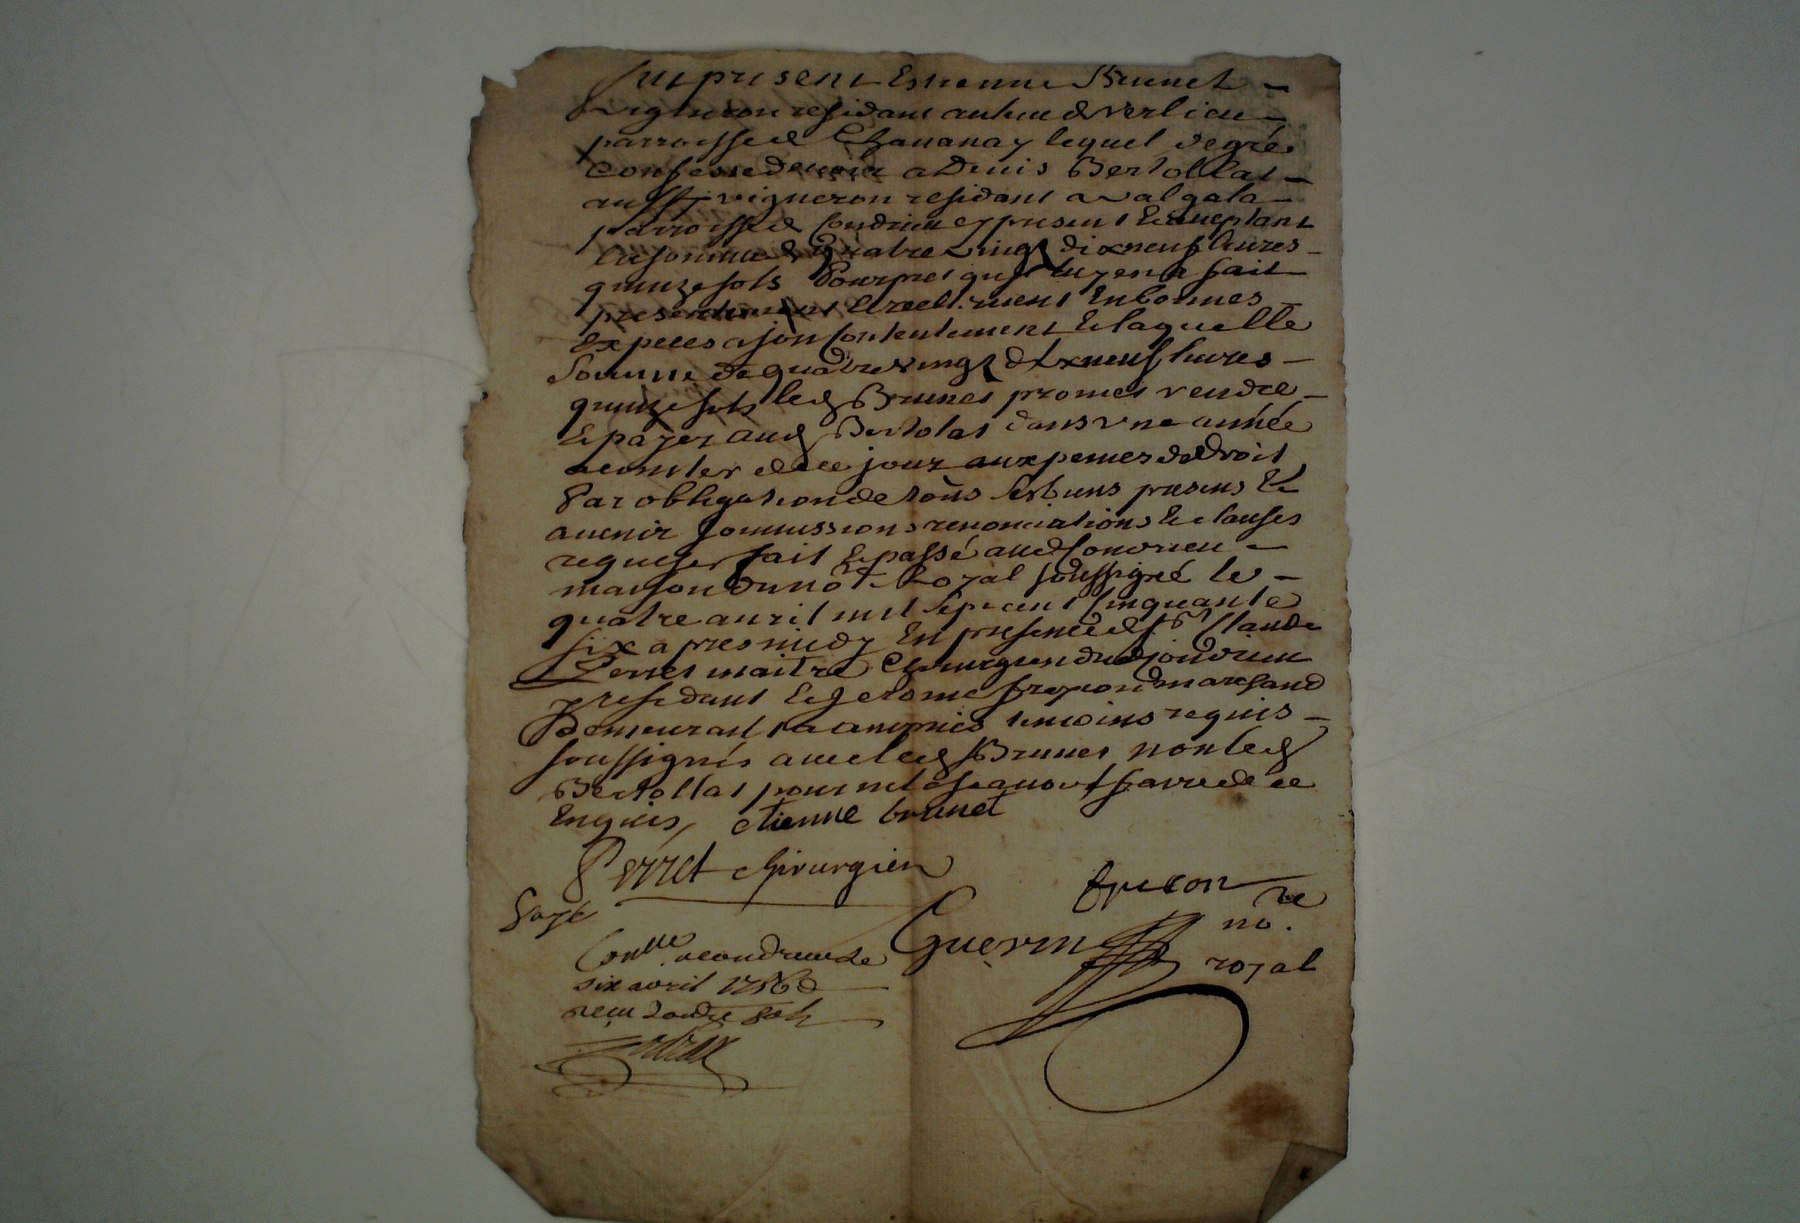 fut present Estienne Brunet
vigneron residant au lieu de verlieu
parroisse de Chavanay lequel de gré
Confesse devoir a Denis Bertollat
aussy vigneron residant a val gala
parroisse de Condrieu cy present et acceptant
la somme de quatre vingt dix neuf livres
quinze sols pour pret qu'il luy en a fait
presentement et reellement En bonnes
Expeces a son Contentement Et laquelle
Somme de quatre vingt dix neuf livres
quinze sols led Brunet promet rendre
Et payer aud Bertolat dans une année
a conter de ce jour aux peines de droit
Par obligation de tous ses biens presens Et
avenir soumissions renonciations Et clauses
requises fait Et passé aud Condrieu
maison du no.re Royal soussigné le
quatre avril mil sept cent Cinquante
six apres midy En presence de sr Claude
Perret maitre Chirurgien dud Condrieu
y residant Et Jerome freycon marchand
Demeurant a temoins requis
soussignés avec led Brunet non led
Bertollat pour ne le sçavoir faire de ce
Enquis, etienne brunet
Perret chirurgien
freicon
Guerin no.re
royal
Con.lle a condrieu le
six avril 1756
receu douze sols